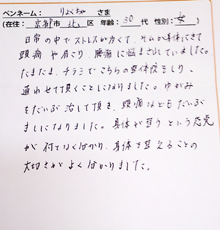 ペンネーム：(りんちゃん) さま
(在住：京都市北区 年齢：30代 性別：女)
日常の中でストレスが多くて、それが身体にきて
頭痛や肩こり、腰痛に悩まされていました。
たまたま、チラシでこちらの整体院を知り、
通わせて頂くことになりました。ゆがみ
もだいぶ治して頂き、頭痛などもだいぶ
ましになりました。身体が整うという感覚
が何となく分かり、身体を整えることの
大切さがよく分かりました。